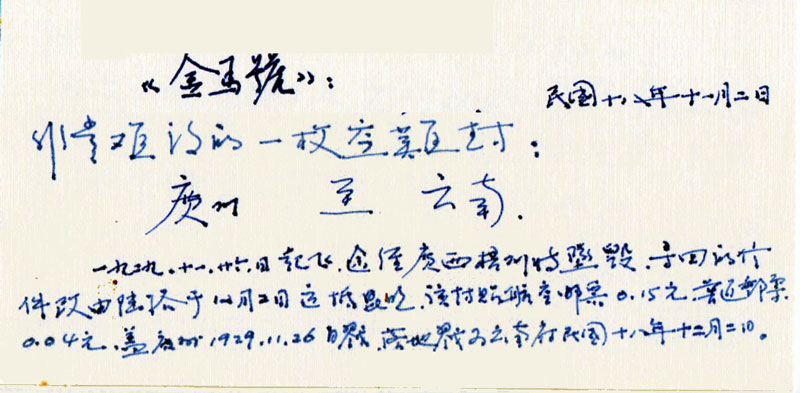 《金馬號》：
民國十八年十一月二日
非常难得的一枚空難封：
廣州 至 云南.
一九二九.十一.廿六.日起飞.途径廣西梧州時墜毁.寻回的信
件改由陆路于12月2日运抵昆明.该封贴航空邮票0.15元.普通邮票
0.04元.盖廣州1929.11.26日戳.落地戳为云南府民国十八年十二月二日。